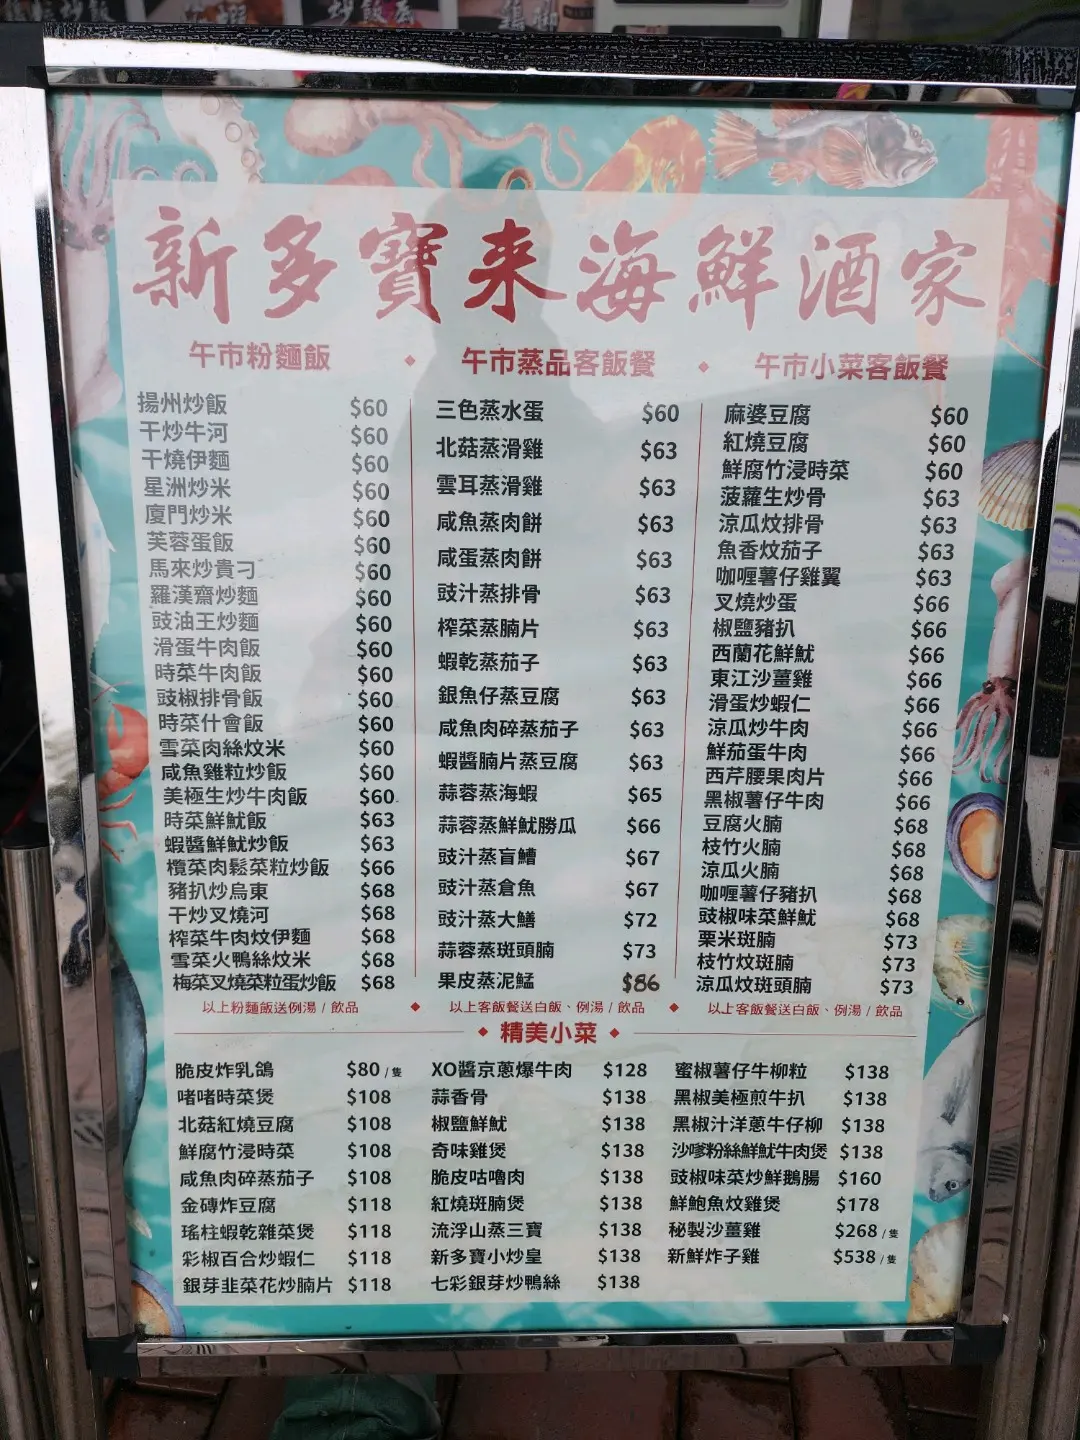 新多寶来海鮮酒家
午市粉麵飯
揚州炒飯 $60
干炒牛河 $60
干燒伊麵 $60
星洲炒米 $60
廈門炒米 $60
芙蓉蛋飯 $60
馬來炒貴刁 $60
羅漢齋炒麵 $60
豉油王炒麵 $60
滑蛋牛肉飯 $60
時菜牛肉飯 $60
豉椒排骨飯 $60
時菜什會飯 $60
雪菜肉絲炆米 $60
咸魚雞粒炒飯 $60
美極生炒牛肉飯 $60
時菜鮮魷飯 $63
蝦醬鮮魷炒飯 $63
欖菜肉鬆菜粒炒飯 $66
豬扒炒烏東 $68
干炒叉燒河 $68
榨菜牛肉炆伊麵 $68
雪菜火鴨絲炆米 $68
梅菜叉燒菜粒蛋炒飯 $68
以上粉麵飯送例湯 / 飲品
午市蒸品客飯餐
三色蒸水蛋 $60
北菇蒸滑雞 $63
雲耳蒸滑雞 $63
咸魚蒸肉餅 $63
咸蛋蒸肉餅 $63
豉汁蒸排骨 $63
榨菜蒸腩片 $63
蝦乾蒸茄子 $63
銀魚仔蒸豆腐 $63
咸魚肉碎蒸茄子 $63
蝦醬腩片蒸豆腐 $63
蒜蓉蒸海蝦 $65
蒜蓉蒸鮮魷勝瓜 $66
豉汁蒸盲鰽 $67
豉汁蒸倉魚 $67
豉汁蒸大鱔 $72
蒜蓉蒸斑頭腩 $73
果皮蒸泥鯭 $86
以上客飯餐送白飯、例湯 / 飲品
午市小菜客飯餐
麻婆豆腐 $60
紅燒豆腐 $60
鮮腐竹浸時菜 $60
菠蘿生炒骨 $63
涼瓜炆排骨 $63
魚香炆茄子 $63
咖喱薯仔雞翼 $63
叉燒炒蛋 $66
椒鹽豬扒 $66
西蘭花鮮魷 $66
東江沙薑雞 $66
滑蛋炒蝦仁 $66
涼瓜炒牛肉 $66
鮮茄蛋牛肉 $66
西芹腰果肉片 $66
黑椒薯仔牛肉 $66
豆腐火腩 $68
枝竹火腩 $68
涼瓜火腩 $68
咖喱薯仔豬扒 $68
豉椒味菜鮮魷 $68
栗米斑腩 $73
枝竹炆斑腩 $73
涼瓜炆斑頭腩 $73
以上客飯餐送白飯、例湯 / 飲品
精美小菜
脆皮炸乳鴿 $80 / 隻
啫啫時菜煲 $108
北菇紅燒豆腐 $108
鮮腐竹浸時菜 $108
咸魚肉碎蒸茄子 $108
金磚炸豆腐 $118
瑤柱蝦乾雜菜煲 $118
彩椒百合炒蝦仁 $118
銀芽韭菜花炒腩片 $118
XO醬京蔥爆牛肉 $128
蒜香骨 $138
椒鹽鮮魷 $138
奇味雞煲 $138
脆皮咕嚕肉 $138
紅燒斑腩煲 $138
流浮山蒸三寶 $138
新多寶小炒皇 $138
七彩銀芽炒鴨絲 $138
蜜椒薯仔牛柳粒 $138
黑椒美極煎牛扒 $138
黑椒汁洋蔥牛仔柳 $138
沙嗲粉絲鮮魷牛肉煲 $138
豉椒味菜炒鮮鵝腸 $160
鮮鮑魚炆雞煲 $178
秘製沙薑雞 $268 / 隻
新鮮炸子雞 $538 / 隻